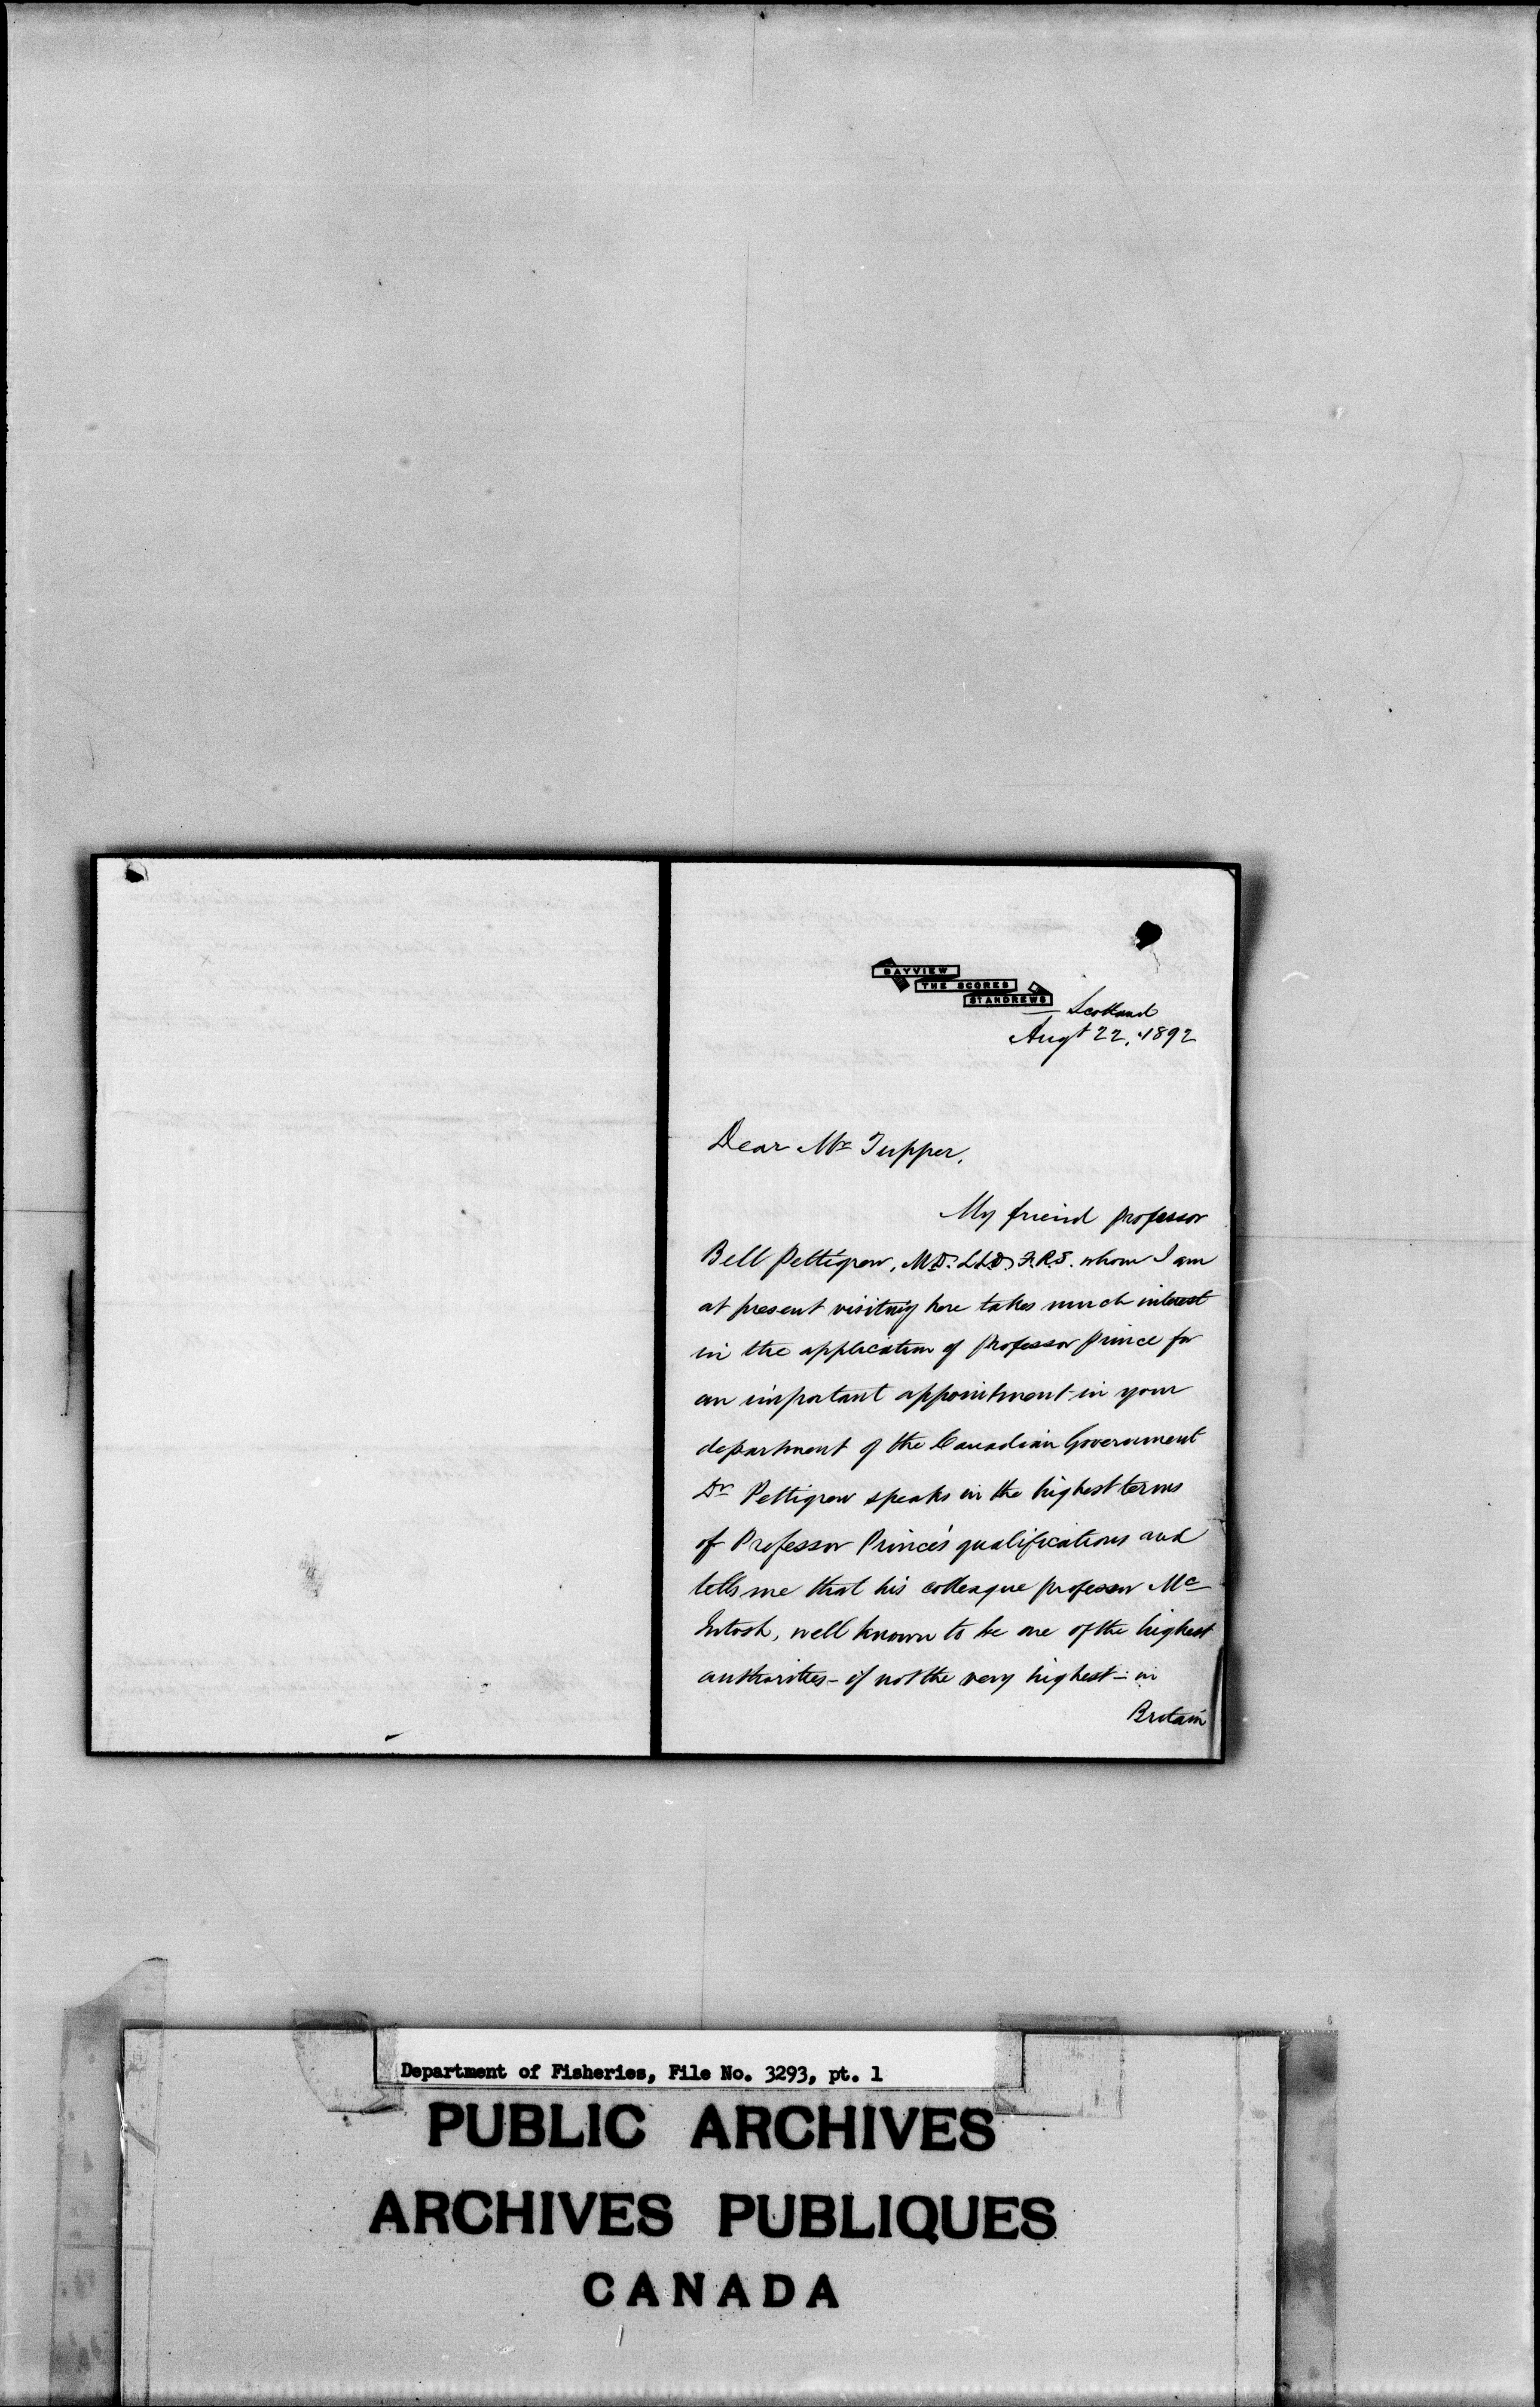 BAYVIEW
THE SCORES
ST ANDREWS
Scotland
Augt 22, 1892
Dear Mr Tupper,
My friend professor
Bell Pettigrew, M.D. LL.D. F.R.S. whom I am
at present visiting here takes much interest
in the application of Professor Prince for
an important appointment in your
department of the Canadian Government
Dr Pettigrew speaks in the highest terms
of Professor Prince's qualifications and
tells me that his colleague professor Mc
Intosh, well known to be one of the highest
authorities - if not the very highest - in
Britain
Department of Fisheries, File No. 3293, pt. 1
PUBLIC ARCHIVES
ARCHIVES PUBLIQUES
CANADA